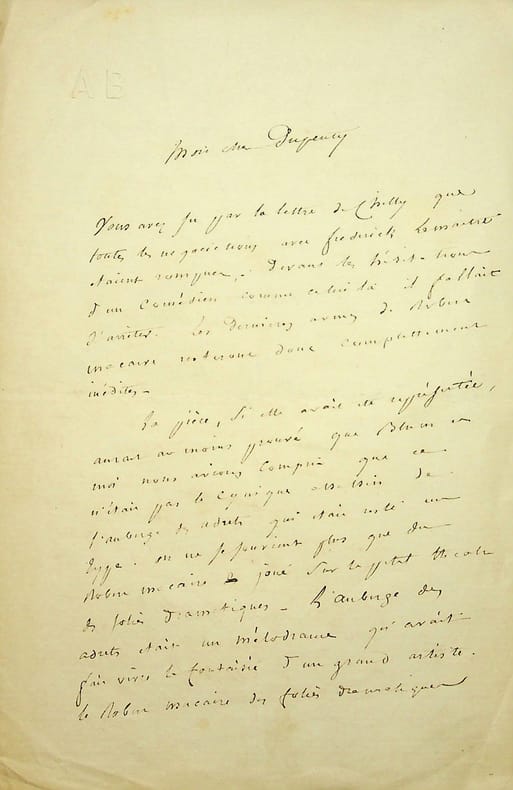 AB
Mon cher Dugency
Vous avez su par la lettre de Chilly que
toutes les négociations avec frederick Lemaître
étaient rompues. Devant les hésitations
d'un Comédien comme celui là il fallait
s'arrêter. Les Dernières armes de Robert
macaire resteront donc complettement
inédites.
La pièce, si elle avait été représentée,
aurait au moins prouvé que et
moi nous avions compris que ce
n'était pas le Cynique assassin de
l'auberge des adrets qui était resté un
type. on ne se souvient plus que du
Robert macaire joué sur le petit théatre
des folies dramatiques. L'auberge des
adrets était un mélodrame qu'avait
fait vivre la fantaisie d'un grand artiste.
le Robert macaire des folies dramatiques